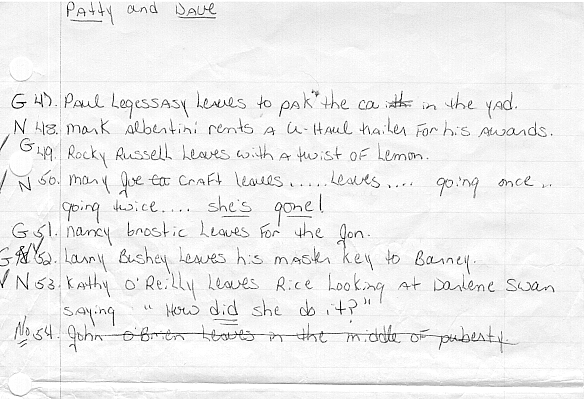 Patty and Dave
G 47. Paul Legessasy Leaves to pak the ca in the yad.
N 48. Mark Albertini rents A U-Haul trailer For his Awards.
G 49. Rocky Russell Leaves with A twist OF Lemon.
N 50. Mary Joe CRAFT leaves..... Leaves.... going once..
going twice.... she's gone!
G 51. Nancy brostic Leaves For the Jon.
G 52. Larry Bushey Leaves his master key to Barney.
N 53. Kathy O'Reilly Leaves Rice Looking At Darlene Swan
saying "How did she do it?"
No 54. John O'Brien Leaves in the middle OF puberty.